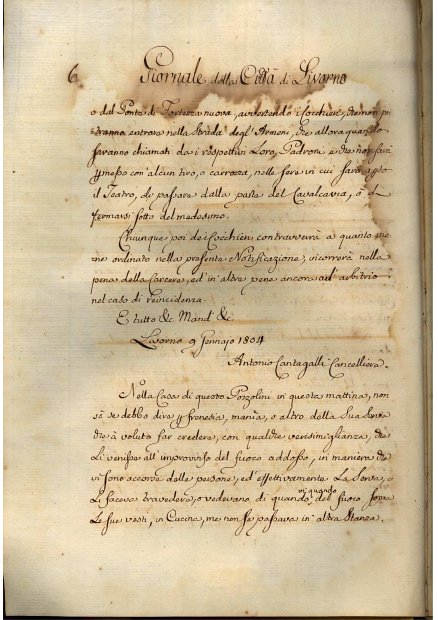 6. Giornale della Città di Livorno
o dal Ponte di Fortezza nuova, avvertendo i Cocchieri, che non po
tranno entrare nella Strada degl'Armeni, che allora quando
saranno chiamati da i respettivi Loro Padroni e che non sarà
pmesso con alcun tiro, o carrozza, nelle sere in cui sarà apto
il Teatro, di passare dalla parte del Cavalcavia, o di
fermarsi sotto del medesimo.
Chiunque poi de Cocchieri contravverrà a quanto vie
ne ordinato nella presente Notificazione, incorrerà nella
pena della Carcere, ed in altre pene ancora all'arbitrio
nel caso di reincidenza.
E tutto &c. Mand. &c.
Livorno 9 Gennajo 1804
Antonio Cantagalli Cancelliere.
Nella Casa di questo Pozzolini in questa mattina, non
sò se debbo dire p frenesia, manìa, o altro della Sua Serva
che à voluto far credere, con qualche verisimiglianza, che
Li venisse all'improvviso del fuoco addosso, in maniera che
vi sono accorse delle persone, ed effettivamente La Serva, o
Li faceva travedere, o vedevano di quando in quando del fuoco sopra
Le sue vesti, in Cucina, me non se passava in altra Stanza.